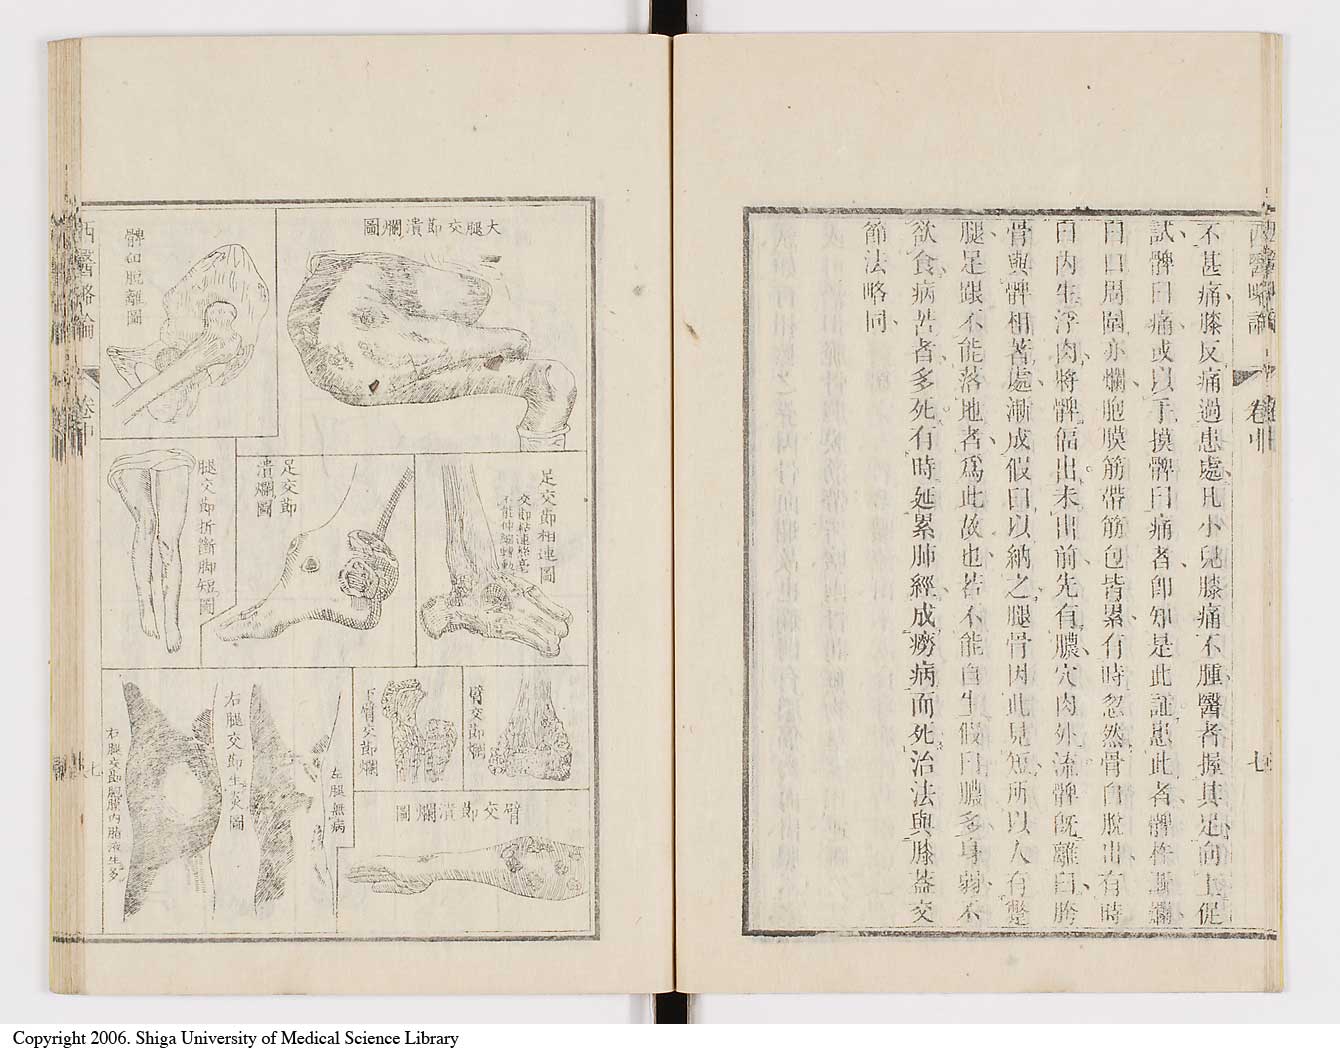 西醫略論 卷中 七
不甚痛膝反痛過患處凡小兒膝痛不腫醫者握其足向上促
試髀臼痛或以手摸髀臼痛者卽知是此証患此者髀杵漸爛
臼口周圍亦爛胞膜筋帶筋包皆累有時忽然骨自脫出有時
臼內生浮肉將髀偪出未出前先有膿穴肉外流髀旣離臼胯
骨與髀相著處漸成假臼以納之腿骨因此見短所以人有蹩
腿足跟不能落地者爲此故也若不能自生假臼膿多身弱不
欲食病苦者多死有時延累肺經成癆病而死治法與膝蓋交
節法略同
大腿交節潰爛圖
髀臼脫離圖
足交節相連圖
交節粘連終壹
不能伸縮轉動
足交節
潰爛圖
腿交節折斷脚短圖
臂交節爛
下臂交節爛
臂交節潰爛圖
左腿無病
右腿交節生炎圖
右腿交節胞膜內脂液生多
西醫略論 卷中 七
Copyright 2006. Shiga University of Medical Science Library